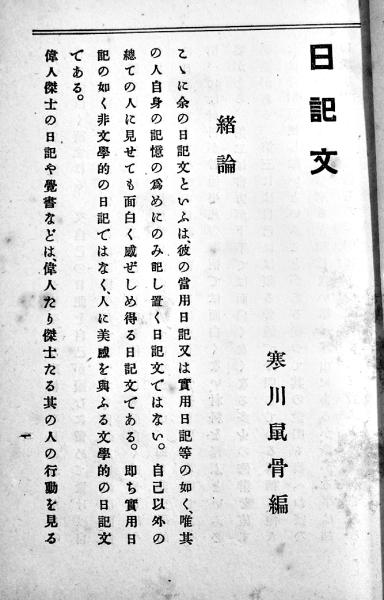 日記文
寒川鼠骨編
緒論
こゝに余の日記文といふは、彼の當用日記又は實用日記等の如く、唯其
の人自身の記憶の爲めにのみ記し置く日記文ではない。自己以外の
總ての人に見せても面白く感ぜしめ得る日記文である。即ち實用日
記の如く非文學的の日記ではなく、人に美感を與ふる文學的の日記文
である。
偉人傑士の日記や覺書などは、偉人たり傑士たる其の人の行動を見る
一